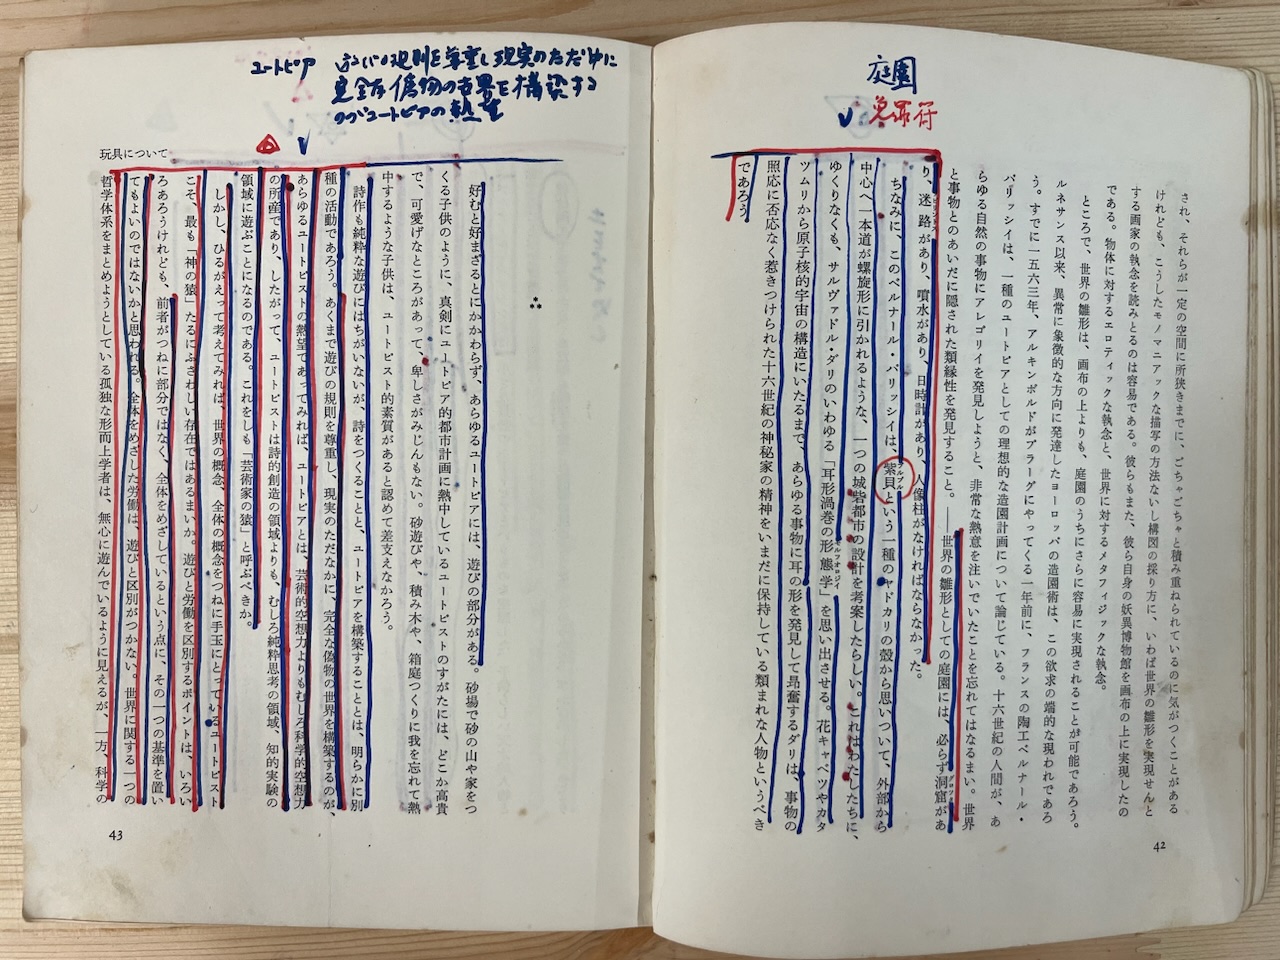 庭園
免罪符
され、それらが一定の空間に所狭きまでに、ごちゃごちゃと積み重ねられているのに気がつくことがある
けれども、こうしたモノマニアックな描写の方法ないし構図の採り方に、いわば世界の雛形を実現せんと
する画家の執念を読みとるのは容易である。彼らもまた、彼ら自身の妖異博物館を画布の上に実現したの
である。物体に対するエロティックな執念と、世界に対するメタフィジックな執念。
ところで、世界の雛形は、画布の上よりも、庭園のうちにさらに容易に実現されることが可能であろう。
ルネサンス以来、異常に象徴的な方向に発達したヨーロッパの造園術は、この欲求の端的な現われであろ
う。すでに一五六三年、アルキンボルドがプラーグにやってくる一年前に、フランスの陶工ベルナール・
パリッシイは、一種のユートピアとしての理想的な造園計画について論じている。十六世紀の人間が、あ
らゆる自然の事物にアレゴリイを発見しようと、非常な熱意を注いでいたことを忘れてはなるまい。世界
と事物とのあいだに隠された類縁性を発見すること。――世界の雛形としての庭園には、必らず洞窟があ
り、迷路があり、噴水があり、日時計があり、人像柱がなければならなかった。
ちなみに、このベルナール・パリッシイは、紫貝という一種のヤドカリの殻から思いついて、外部から
中心へ一本道が螺旋形に引かれるような、一つの城砦都市の設計を考案したらしい。これはわたしたちに、
ゆくりなくも、サルヴァドル・ダリのいわゆる「耳形渦巻の形態学」を思い出させる。花キャベツやカタ
ツムリから原子核的宇宙の構造にいたるまで、あらゆる事物に耳の形を発見して昂奮するダリは、事物の
照応に否応なく惹きつけられた十六世紀の神秘家の精神をいまだに保持している類まれな人物というべき
であろう。
42
ユートピア
規則を尊重し現実のただ中に
完全な偽物の世界を構築する
のがユートピアの熱望
玩具について
好むと好まざるとにかかわらず、あらゆるユートピアには、遊びの部分がある。砂場で砂の山や家をつ
くる子供のように、真剣にユートピア的都市計画に熱中しているユートピストのすがたには、どこか高貴
で、可愛げなところがあって、卑しさがみじんもない。砂遊びや、積み木や、箱庭つくりに我を忘れて熱
中するような子供は、ユートピスト的素質があると認めて差支えなかろう。
詩作も純粋な遊びにはちがいないが、詩をつくることと、ユートピアを構築することとは、明らかに別
種の活動であろう。あくまで遊びの規則を尊重し、現実のただなかに、完全な偽物の世界を構築するのが、
あらゆるユートピストの熱望であってみれば、ユートピアとは、芸術的空想力よりもむしろ科学的空想力
の所産であり、したがって、ユートピストは詩的創造の領域よりも、むしろ純粋思考の領域、知的実験の
領域に遊ぶことになるのである。これをしも「芸術家の猿」と呼ぶべきか。
しかし、ひるがえって考えてみれば、世界の概念、全体の概念をつねに手玉にとっているユートピスト
こそ、最も「神の猿」たるにふさわしい存在ではあるまいか。遊びと労働を区別するポイントは、いろい
ろあろうけれども、前者がつねに部分ではなく、全体をめざしているという点に、その一つの基準を置い
てもよいのではないかと思われる。全体をめざした労働は、遊びと区別がつかない。世界に関する一つの
哲学体系をまとめようとしている孤独な形而上学者は、無心に遊んでいるように見えるが、一方、科学の
43